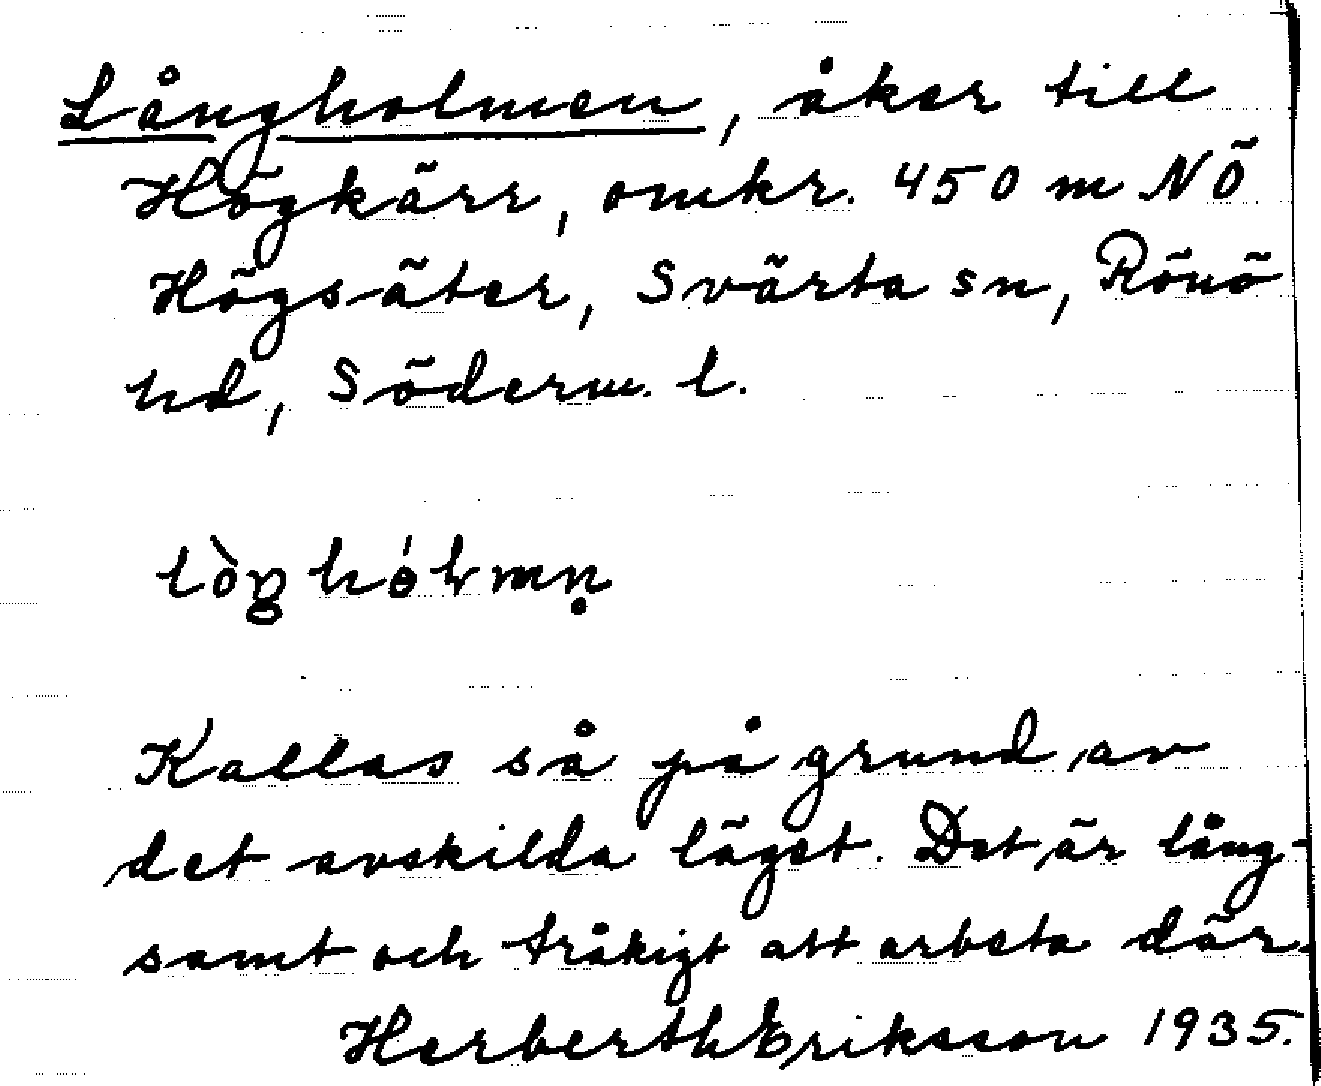 Långholmen, åker till
Högkärr, omkr. 450 m NÖ
Högsäter, Svärta sn, Rönö
hd, Söderm. l.
Kallas så på grund av
det avskilda läget. Det är lång-
samt och tråkigt att arbeta där.
Herberth Eriksson 1935.